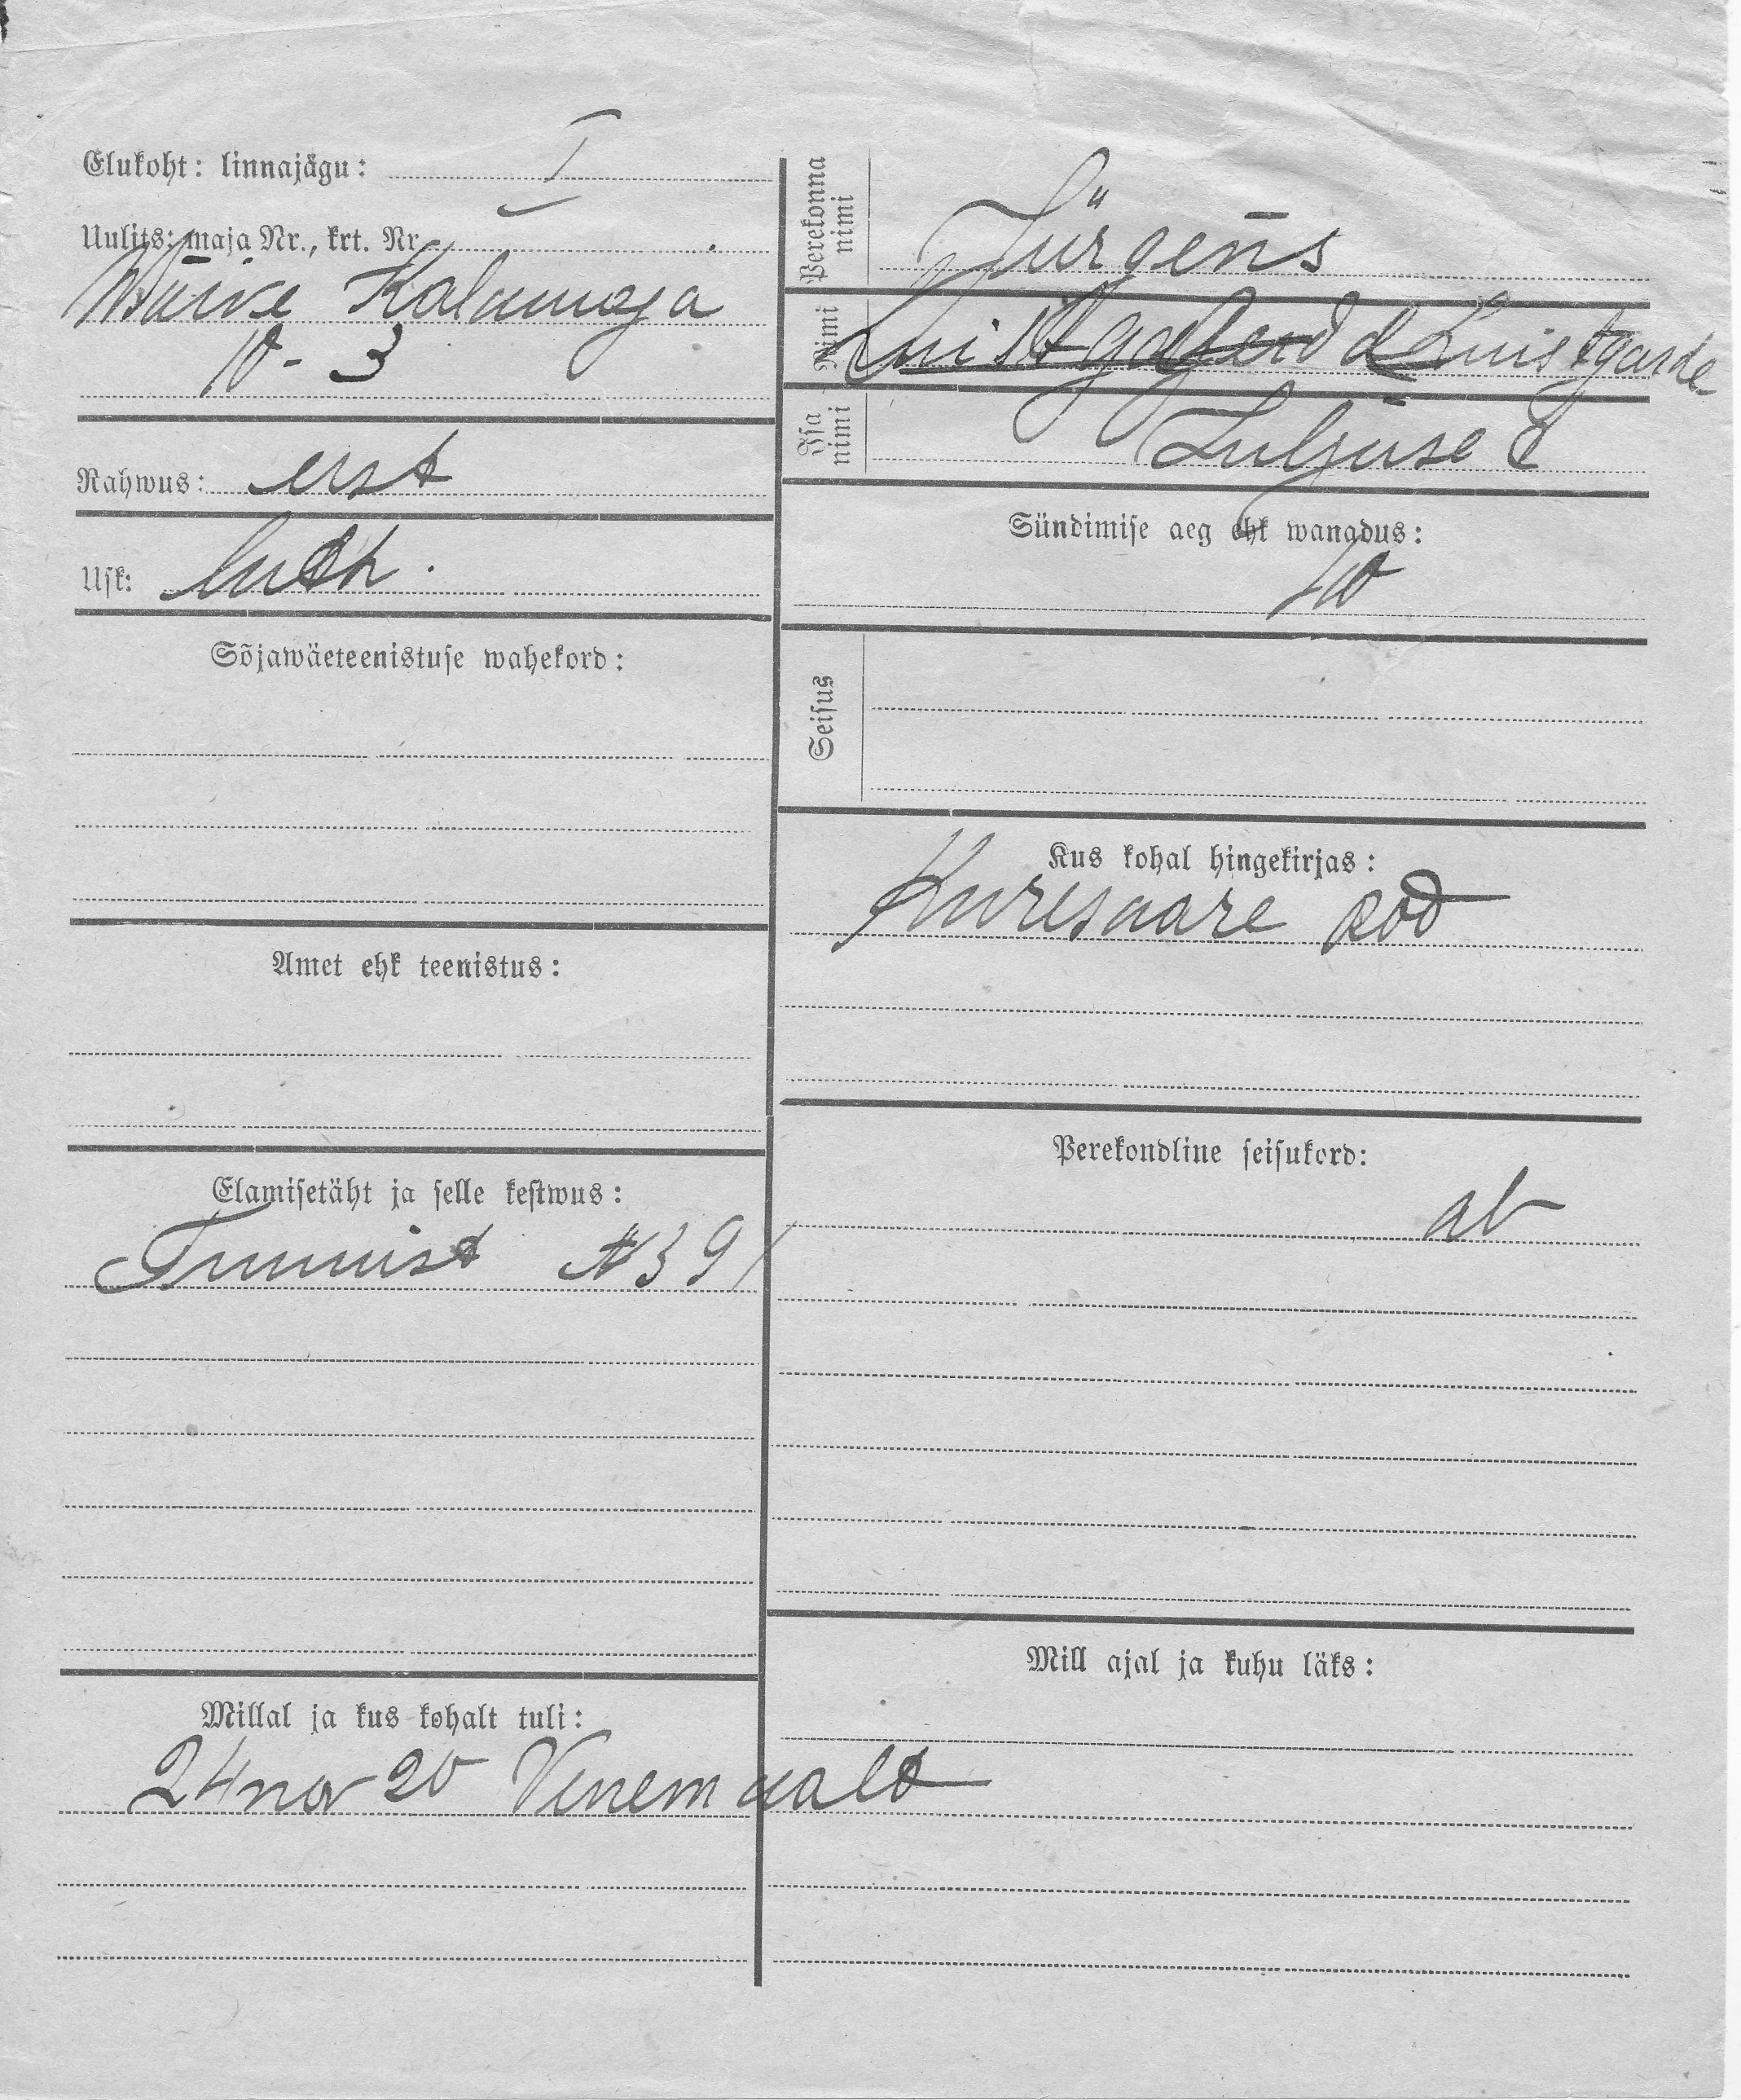 Elukoht: linnajägu: I
Uulits: maja Nr., krt. Nr.
Wäike Kalamaja
10 - 3
Rahwus: eest
Usk: luth.
Sõjawäeteenistuse wahekord:
Amet ehk teenistus:
Elamisetäht ja selle kestwus:
Tunnist № 391
Millal ja kus kohalt tuli:
24 nov 20 Venemaalt
Perekonna nimi
Jürgens
Nimi
Luistgarde
Isa nimi
Juljuse t
Sündimise aeg ehk wanadus:
40
Seisus
Kus kohal hingekirjas:
Kuresaare kod
Perekondline seisukord:
ab
Mill ajal ja kuhu läks: